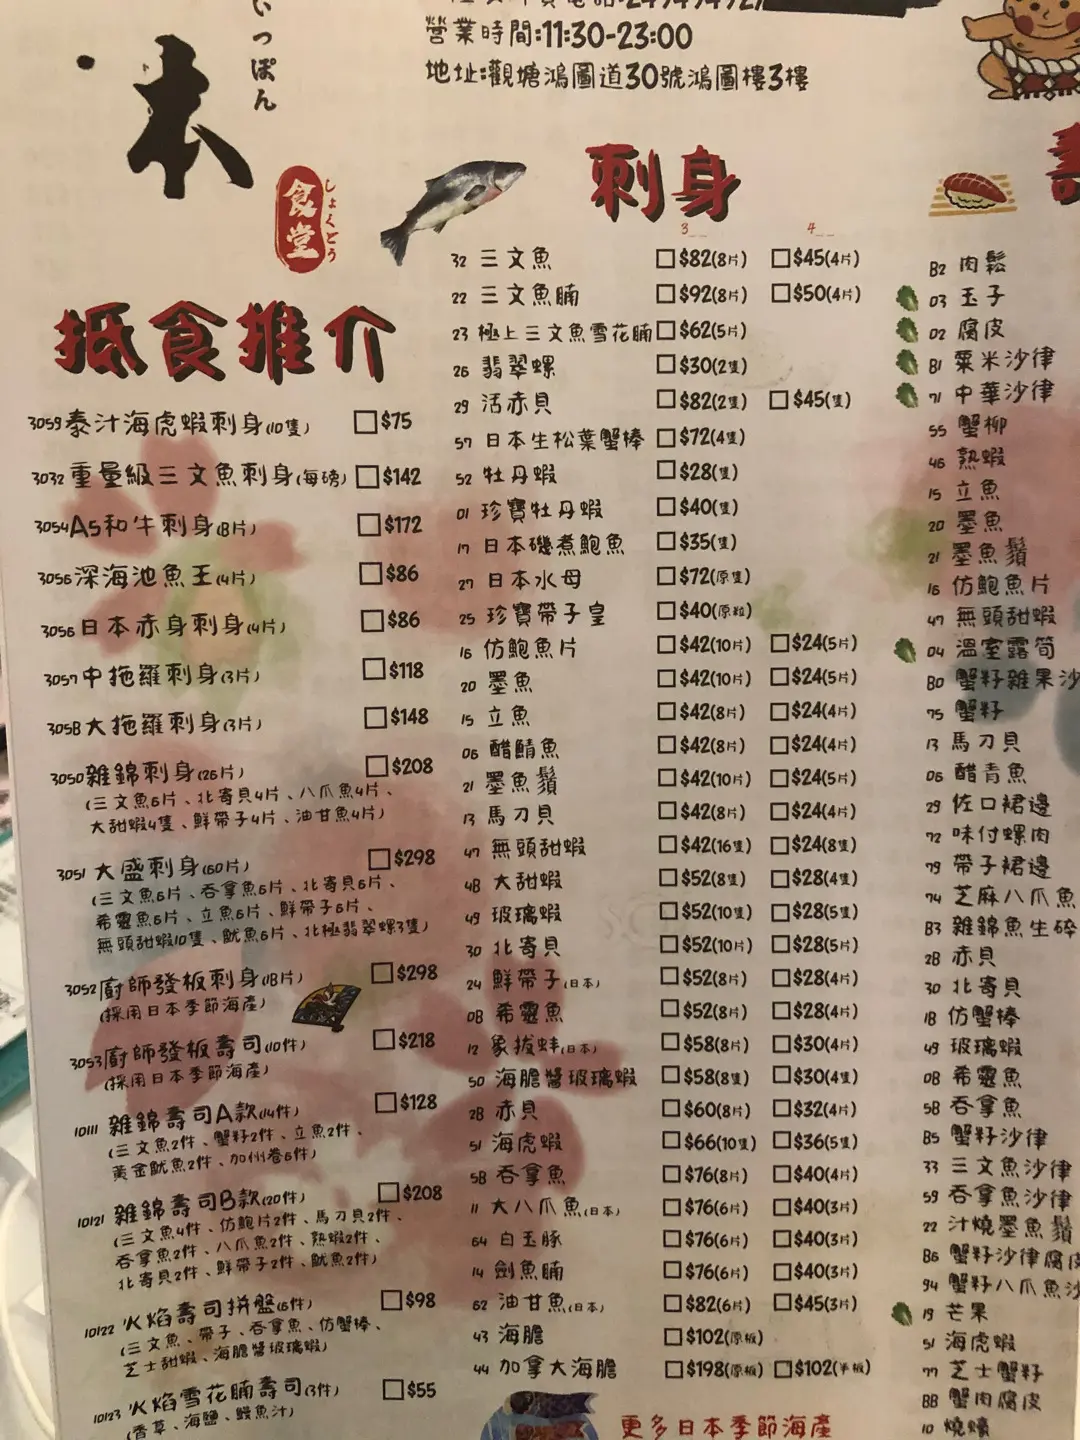 營業時間:11:30-23:00
地址:觀塘鴻圖道30號鴻圖樓3樓
いっぽん
本
食堂
しょくどう
抵食推介
3059 泰汁海虎蝦刺身(10隻) $75
3032 重量級三文魚刺身(每磅) $142
3054 A5和牛刺身(8片) $172
3056 深海池魚王(4片) $86
3056 日本赤身刺身(4片) $86
3057 中拖羅刺身(3片) $118
3058 大拖羅刺身(3片) $148
3050 雜錦刺身(26片) $208
(三文魚6片、北寄貝4片、八爪魚4片、
大甜蝦4隻、鮮帶子4片、油甘魚4片)
3051 大盛刺身(60片) $298
(三文魚6片、吞拿魚6片、北寄貝6片、
希靈魚6片、立魚6片、鮮帶子6片、
無頭甜蝦10隻、魷魚6片、北極翡翠螺3隻)
3052 廚師發板刺身(18片) $298
(採用日本季節海產)
3053 廚師發板壽司(10件) $218
(採用日本季節海產)
10111 雜錦壽司A款(14件) $128
(三文魚2件、蟹籽2件、立魚2件、
黃金魷魚2件、加州卷6件)
10121 雜錦壽司B款(20件) $208
(三文魚4件、仿鮑片2件、馬刀貝2件、
吞拿魚2件、八爪魚2件、熟蝦2件、
北寄貝2件、鮮帶子2件、魷魚2件)
10122 火焰壽司拼盤(6件) $98
(三文魚、帶子、吞拿魚、仿蟹棒、
芝士甜蝦、海膽醬玻璃蝦)
10123 火焰雪花腩壽司(3件) $55
(香草、海鹽、鰻魚汁)
刺身
3__ 4__
32 三文魚 $82(8片) $45(4片)
22 三文魚腩 $92(8片) $50(4片)
23 極上三文魚雪花腩 $62(5片)
26 翡翠螺 $30(2隻)
29 活赤貝 $82(2隻) $45(隻)
57 日本生松葉蟹棒 $72(4隻)
52 牡丹蝦 $28(隻)
01 珍寶牡丹蝦 $40(隻)
17 日本磯煮鮑魚 $35(隻)
27 日本水母 $72(原隻)
25 珍寶帶子皇 $40(原粒)
16 仿鮑魚片 $42(10片) $24(5片)
20 墨魚 $42(10片) $24(5片)
15 立魚 $42(8片) $24(4片)
06 醋鯖魚 $42(8片) $24(4片)
21 墨魚鬚 $42(10片) $24(5片)
13 馬刀貝 $42(8片) $24(4片)
47 無頭甜蝦 $42(16隻) $24(8隻)
48 大甜蝦 $52(8隻) $28(4隻)
49 玻璃蝦 $52(10隻) $28(5隻)
30 北寄貝 $52(10片) $28(5片)
24 鮮帶子(日本) $52(8片) $28(4片)
08 希靈魚 $52(8片) $28(4片)
12 象拔蚌(日本) $58(8片) $30(4片)
50 海膽醬玻璃蝦 $58(8隻) $30(4隻)
28 赤貝 $60(8片) $32(4片)
51 海虎蝦 $66(10隻) $36(5隻)
58 吞拿魚 $76(8片) $40(4片)
11 大八爪魚(日本) $76(6片) $40(3片)
64 白玉豚 $76(6片) $40(3片)
14 劍魚腩 $76(6片) $40(3片)
62 油甘魚(日本) $82(6片) $45(3片)
43 海膽 $102(原板)
44 加拿大海膽 $198(原板) $102(半板)
更多日本季節海產
82 肉鬆
03 玉子
02 腐皮
81 粟米沙律
71 中華沙律
55 蟹柳
46 熟蝦
15 立魚
20 墨魚
21 墨魚鬚
16 仿鮑魚片
47 無頭甜蝦
04 溫室露筍
80 蟹籽雜果沙
75 蟹籽
13 馬刀貝
06 醋青魚
29 佐口裙邊
72 味付螺肉
79 帶子裙邊
74 芝麻八爪魚
83 雜錦魚生碎
28 赤貝
30 北寄貝
18 仿蟹棒
49 玻璃蝦
08 希靈魚
58 吞拿魚
85 蟹籽沙律
33 三文魚沙律
59 吞拿魚沙律
22 汁燒墨魚鬚
86 蟹籽沙律腐皮
94 蟹籽八爪魚沙
19 芒果
51 海虎蝦
77 芝士蟹籽
88 蟹肉腐皮
10 燒蠔